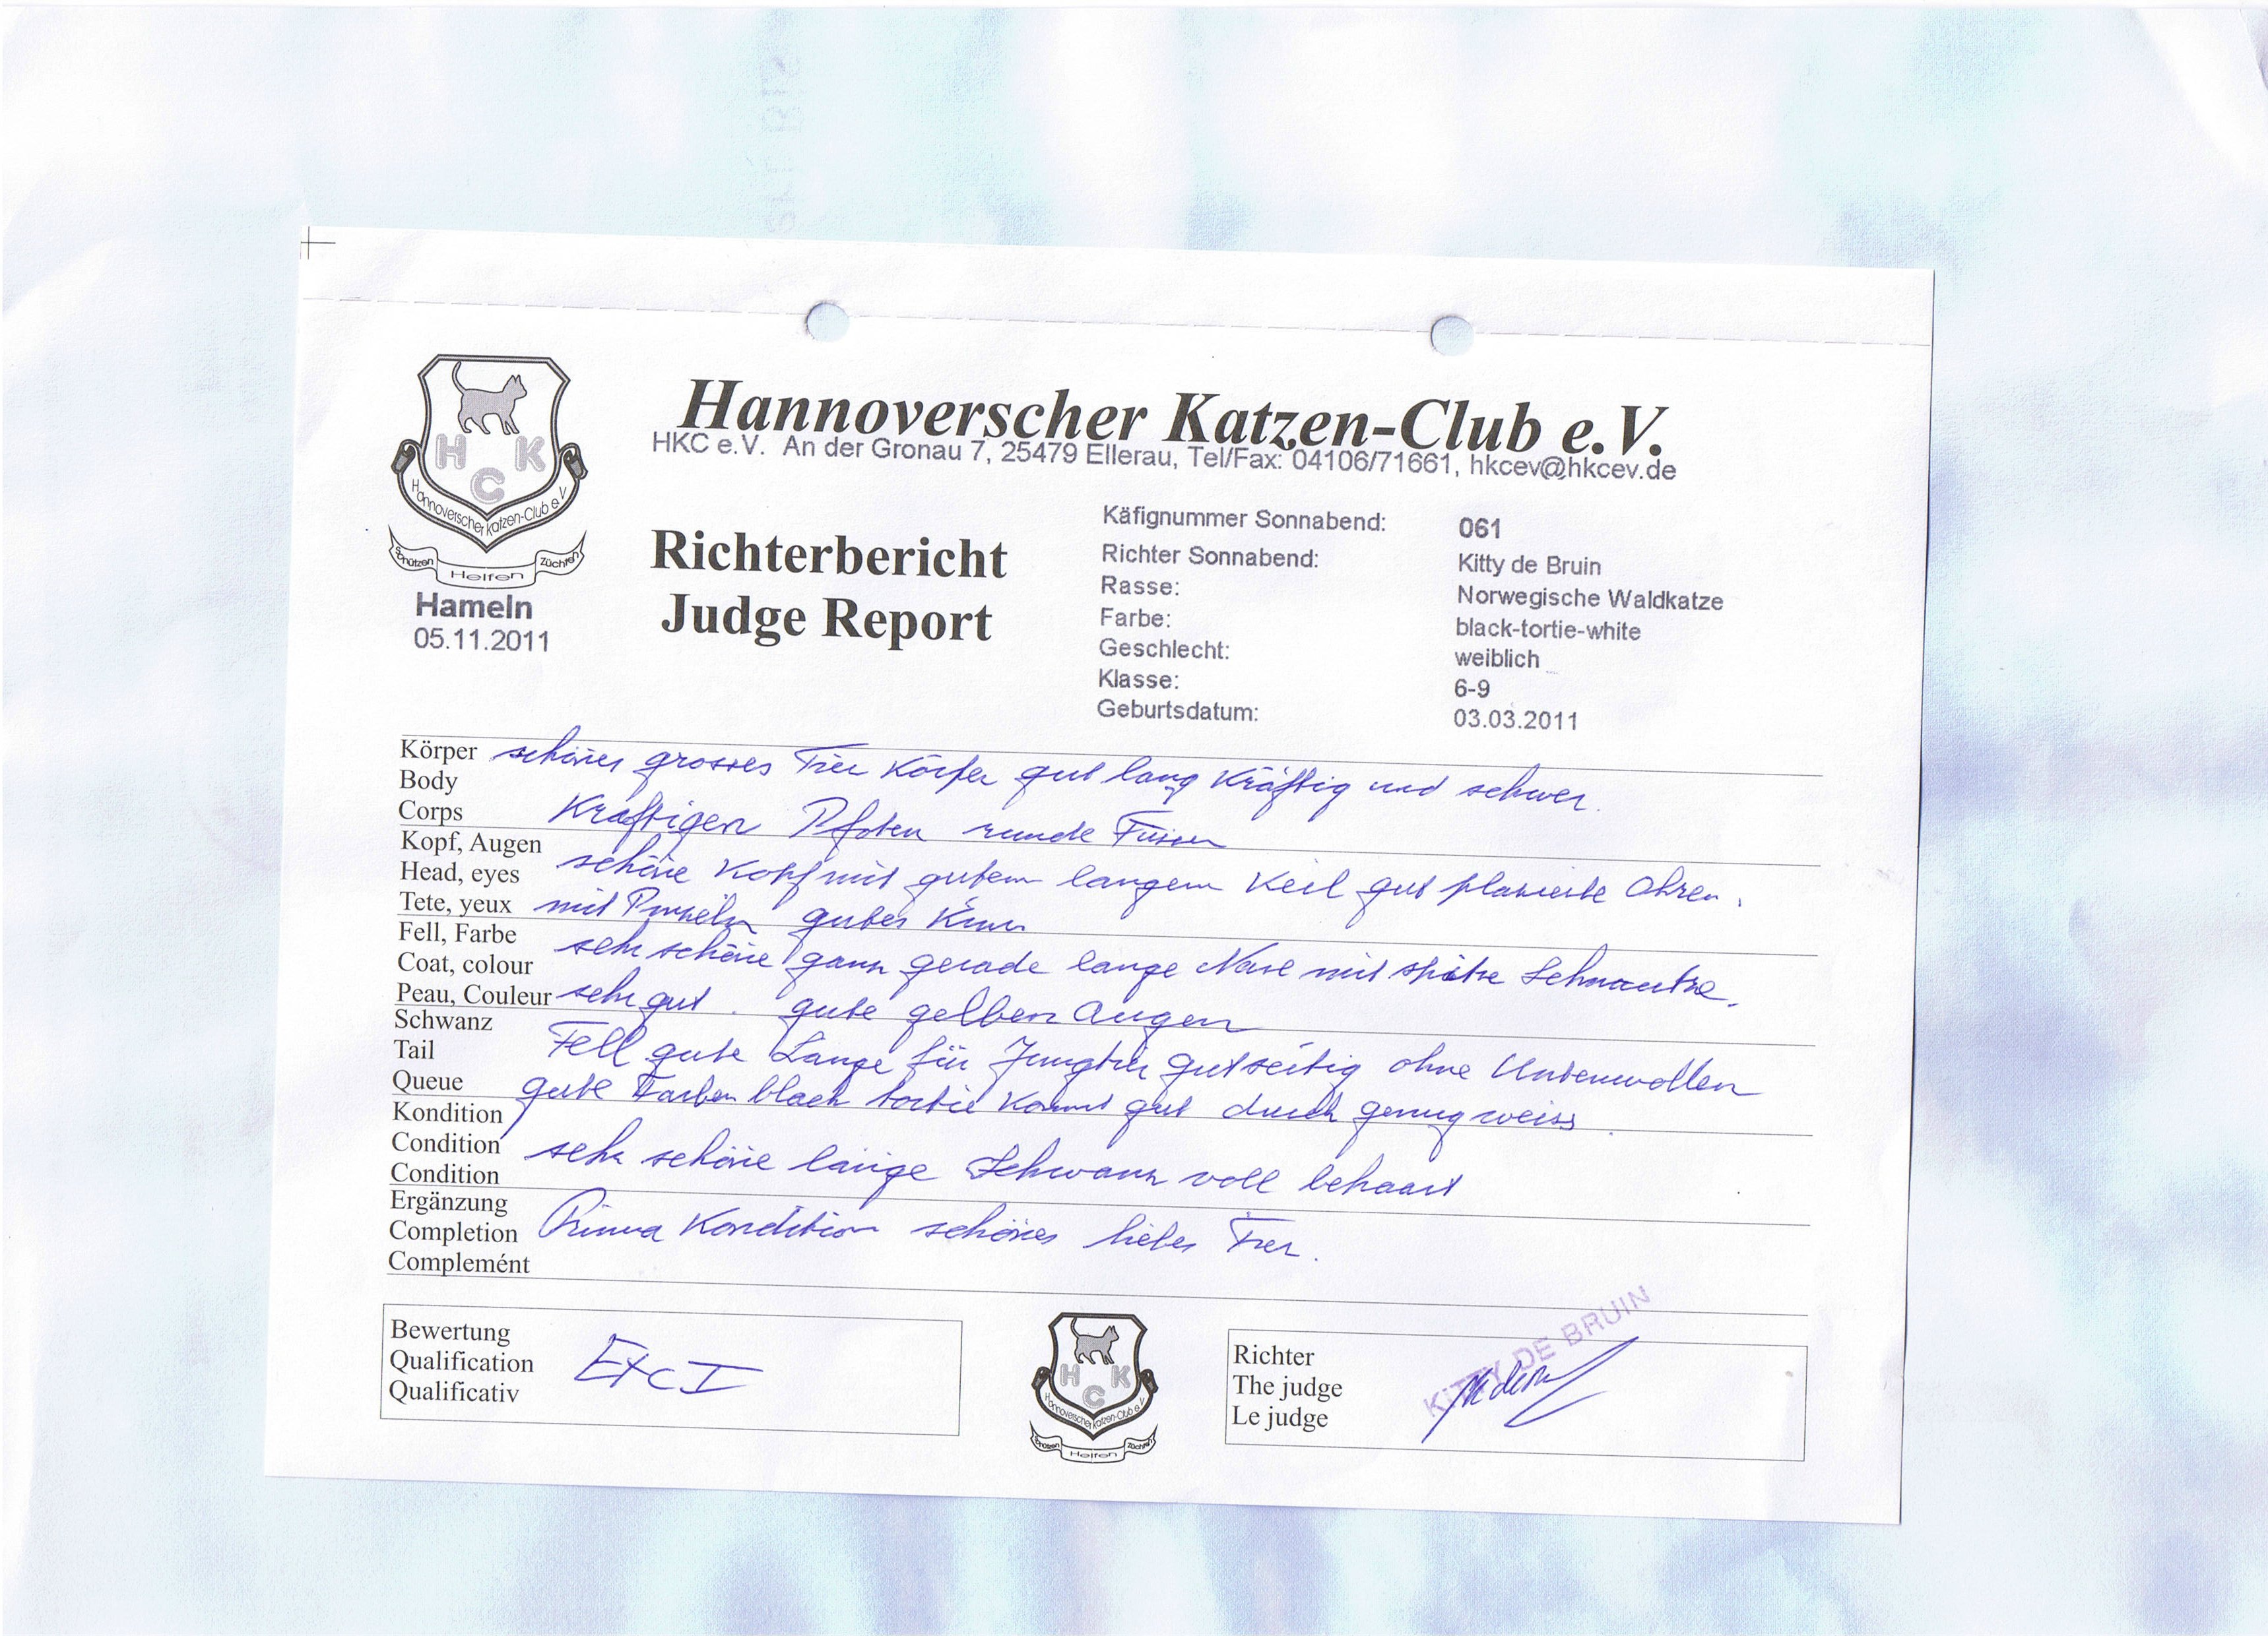 Hannoverscher Katzen-Club e.V.
HKC e.V. An der Gronau 7, 25479 Ellerau, Tel/Fax: 04106/71661, hkcev@hkcev.de
H K
C
Hannoverscher Katzen-Club e.V
Schützen Helfen Züchten
Hameln
05.11.2011
Richterbericht
Judge Report
Käfignummer Sonnabend: 061
Richter Sonnabend: Kitty de Bruin
Rasse: Norwegische Waldkatze
Farbe: black-tortie-white
Geschlecht: weiblich
Klasse: 6-9
Geburtsdatum: 03.03.2011
Körper schönes grosses Tier Körper gut lang kräftig und schwer.
Body
Corps Kräftigen Pfoten runde Füssen
Kopf, Augen
Head, eyes schöne Kopf mit gutem langem Keil gut plazierte Ohren.
Tete, yeux mit Pinseln gutes Kinn
Fell, Farbe
Coat, colour sehr schöne ganz gerade lange Nase mit spitze Schnautze.
Peau, Couleur sehr gut. gute gelben Augen
Schwanz
Tail Fell gute Länge für Jungtier gutseitig ohne Unterwollen
Queue gute Farben black tortie kommt gut durch genug weiss.
Kondition
Condition sehr schöne lange Schwanz voll behaart
Condition
Ergänzung
Completion Prima Kondition schönes liebes Tier.
Complemént
Bewertung
Qualification Exc I
Qualificativ
H K
C
Hannoverscher Katzen-Club e.V
Schützen Helfen Züchten
Richter
The judge
Le judge
KITTY DE BRUIN